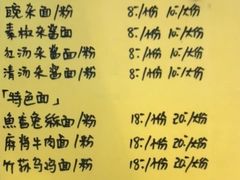 豌杂面/粉 8.-/小份 10.-/大份
素椒杂酱面 8.-/小份 10.-/大份
红汤杂酱面 8.-/小份 10.-/大份
清汤杂酱面/粉 8.-/小份 10.-/大份
「特色面」
鱼香兔丝面/粉 18.-/小份 20.-/大份
麻脊牛肉面/粉 18.-/小份 20.-/大份
竹荪乌鸡面/粉 18.-/小份 20.-/大份